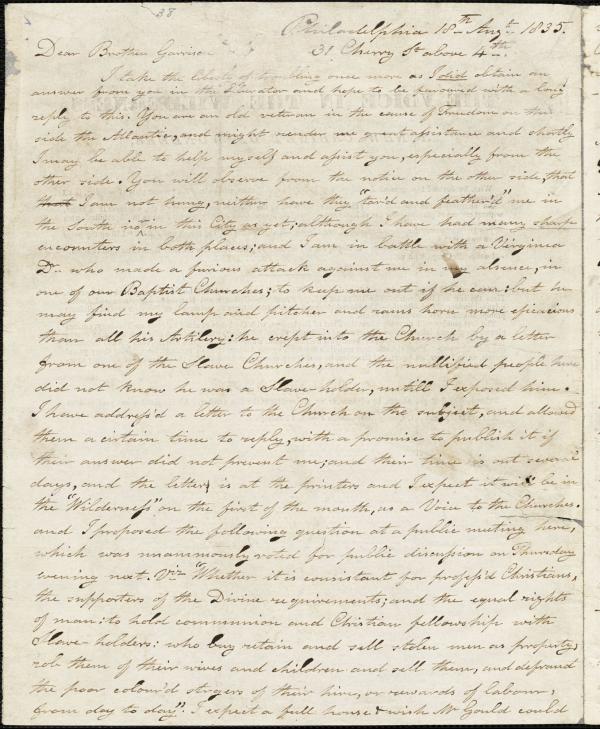 38
Philadelphia 18th Augt. 1835.
Dear Brother Garrison 31 Cherry St above 4th
I take the liberty of troubling once more as I did obtain an
answer from you in the Liberator and hope to be favoured with a long
reply to this. You are an old veteran in the cause of Freedom on this
side the Atlantic, and might render me great assistance and shortly
I may be able to help myself and assist you, especially from the
other side. You will observe from the notice on the other side, that
that I am not hung, neither have they "tar'd and feather'd" me in
the South nor in this City as yet; although I have had many sharp
encounters in both places; and I am in battle with a Virginia
Dr. who made a furious attack against me in my absence, in
one of our Baptist Churches; to keep me out if he can: but he
may find my lamp and pitcher and rams horn more efficacious
than all his Artilery: he crept into the Church by a letter
from one of the Slave Churches, and the nullified people here
did not know he was a Slave-holder, untill I exposed him.
I have address'd a letter to the Church on the subject, and allowed
them a certain time to reply, with a promise to publish it if
their answer did not prevent me; and their time is out several
days, and the letter is at the printers and I expect it will be in
the "Wilderness" on the first of the month, as a Voice to the Churches.
and I proposed the following question at a public meeting here,
which was unanimously voted for public discussion on Thursday
evening next. Viz "Whether it is consistant for profess'd Christians,
the supporters of the Divine requirements; and the equal rights
of man: to hold communion and Christian fellowship with
Slave-holders: who buy retain and sell stolen men as property,
rob them of their wives and children and sell them, and defraud
the poor colour'd strugers of their hire, or rewards of labour,
from day to day". I expect a full house & wish Mr Gould could